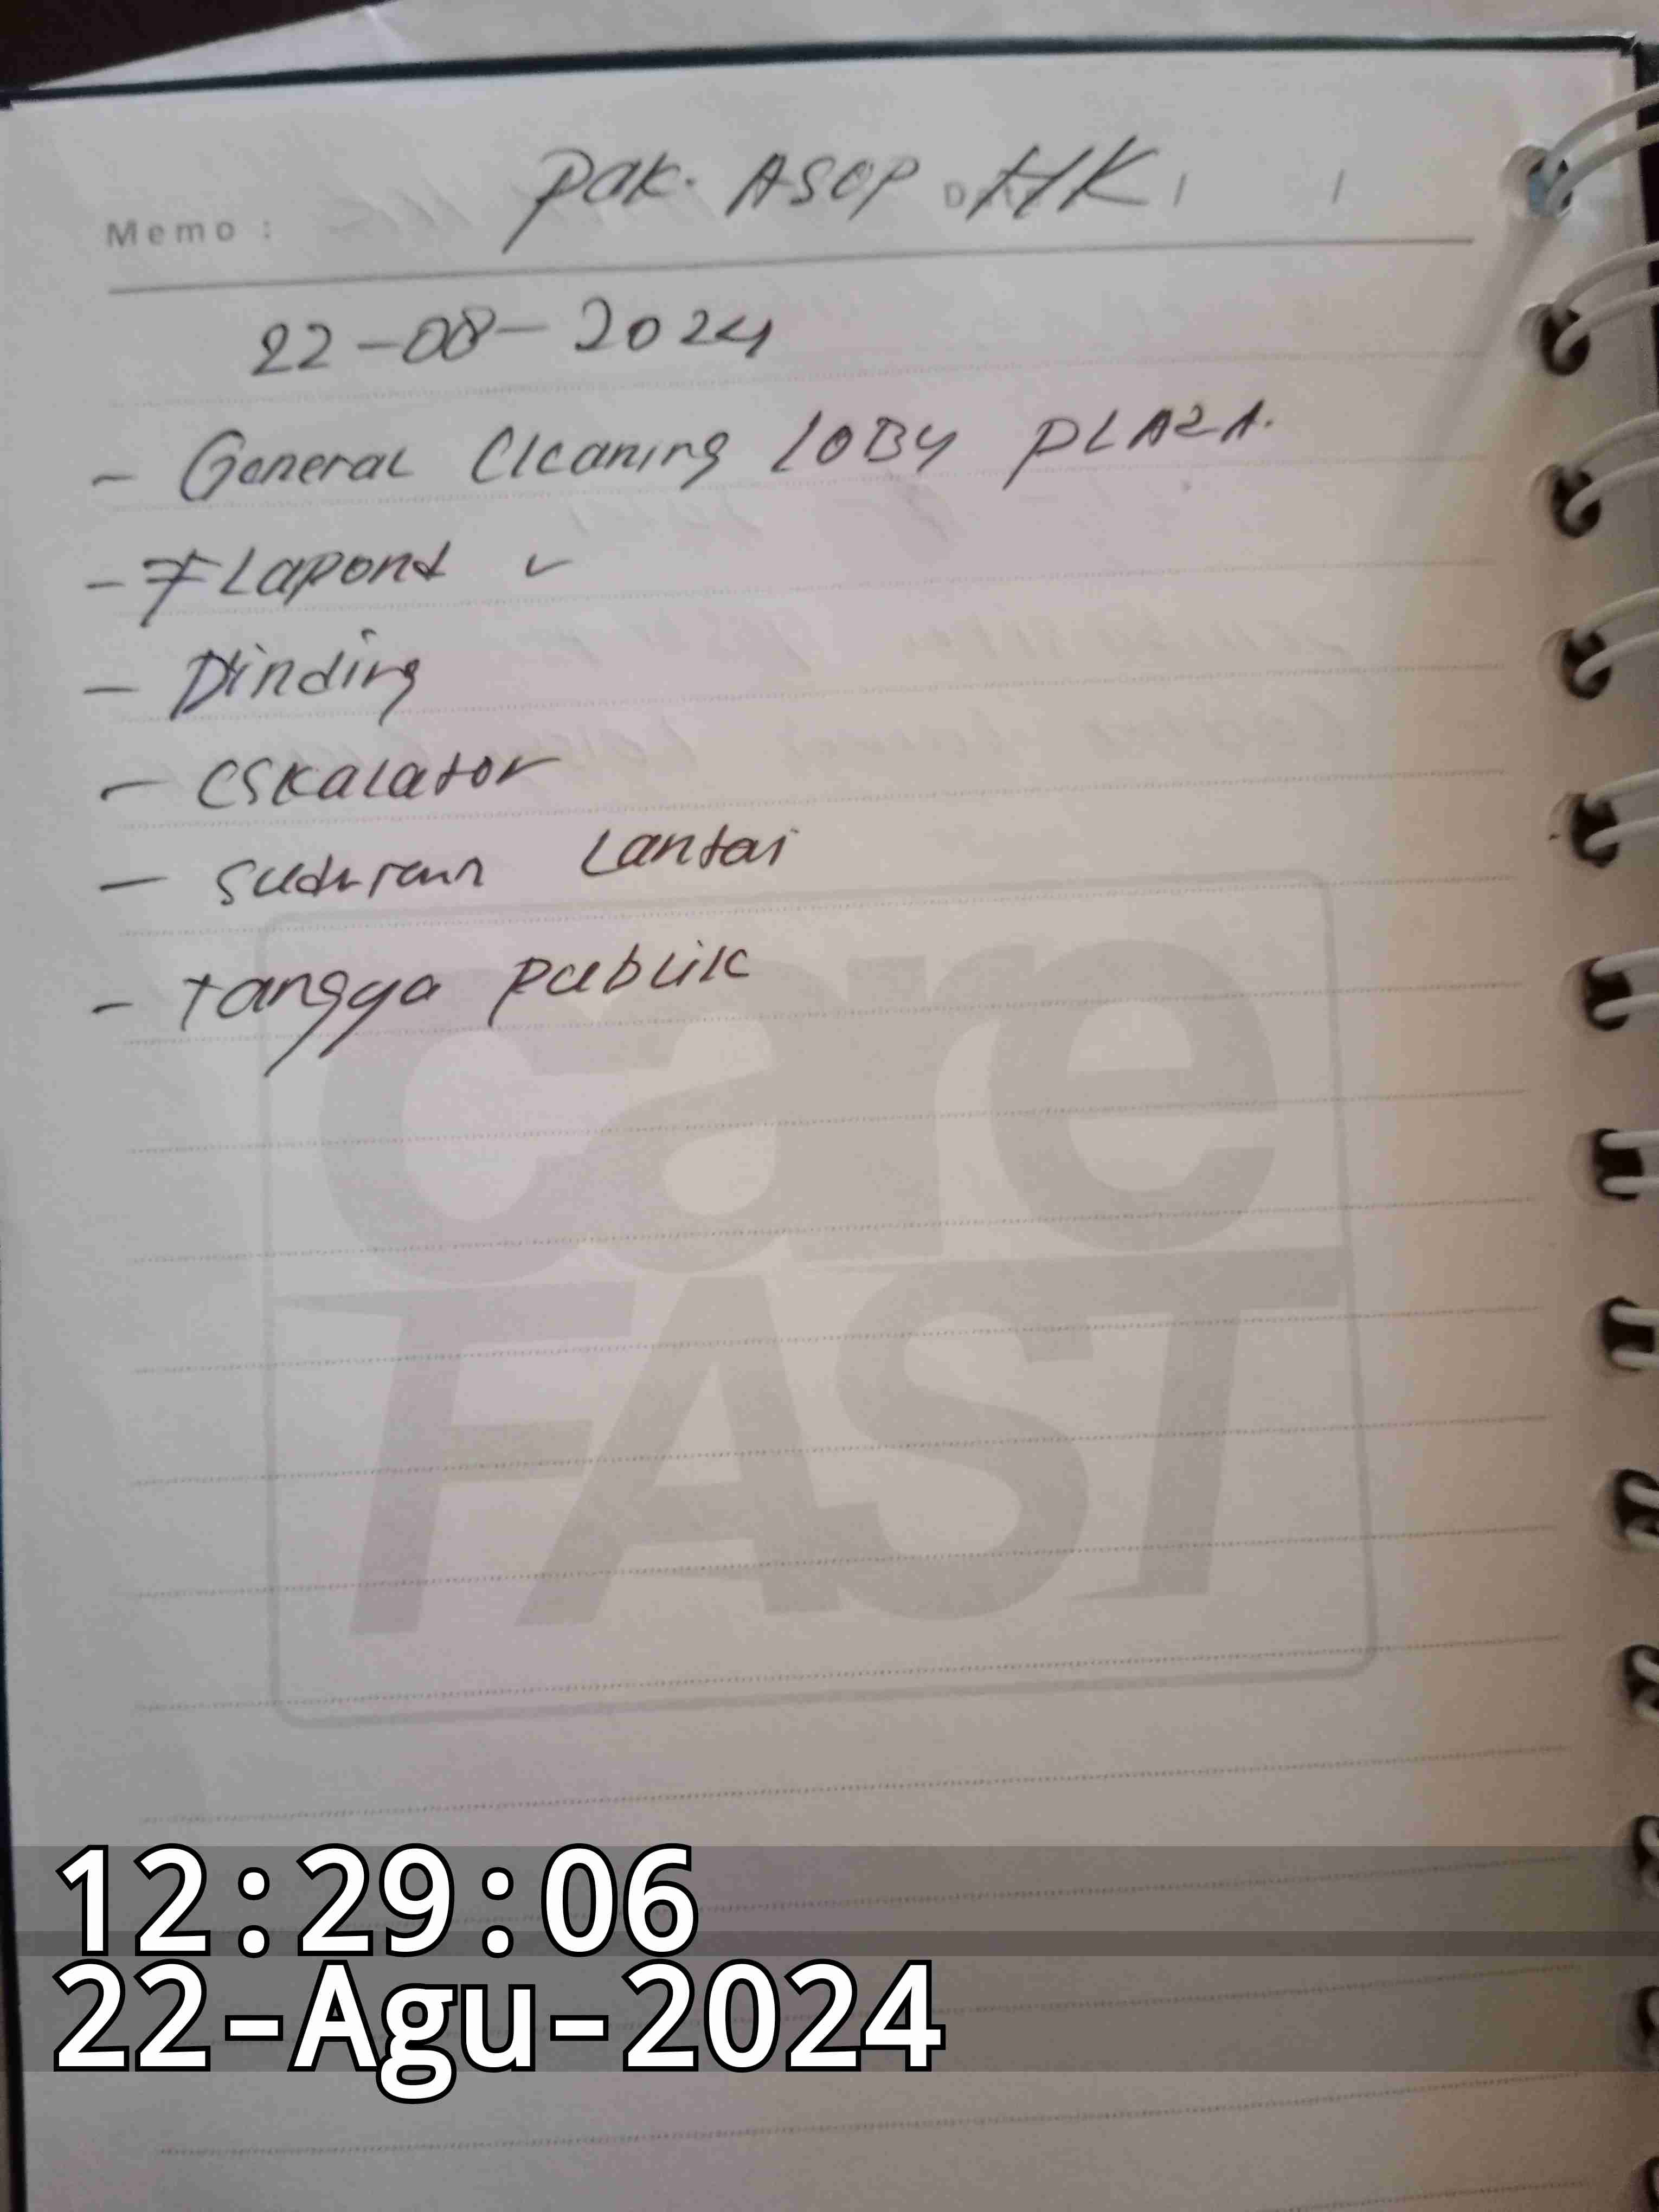 Memo :
Pak. ASOP HK
22-08-2024
- General Cleaning LOBY PLAZA.
- FLapond ✓
- Dinding
- ESKalator
- Lantai
- Tangga Publik
care
FAST
12:29:06
22-Agu-2024